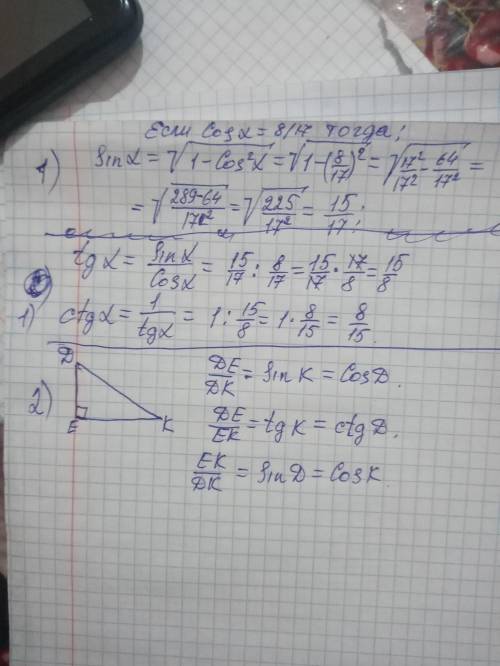 Если Cosα = 8/17 тогда;
1) sinα = √(1 - Cos²α) = √(1 - (8/17)²) = √(17²/17² - 64/17²) =
= √((289-64)/17²) = √(225/17²) = 15/17;
tgα = sinα/Cosα = 15/17 : 8/17 = 15/17 · 17/8 = 15/8
1) ctgα = 1/tgα = 1 : 15/8 = 1 · 8/15 = 8/15.
2) D E K
DE/DK = sin K = Cos D.
DE/EK = tg K = ctg D.
EK/DK = sin D = Cos K.